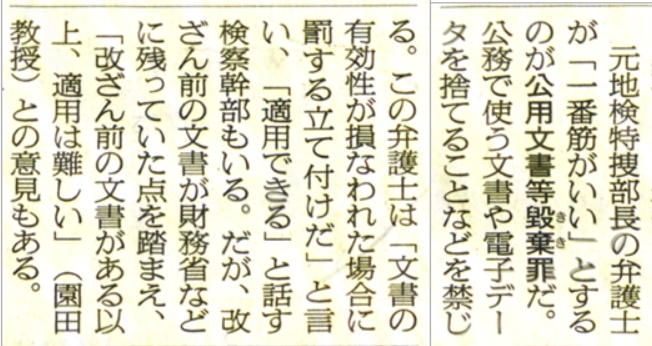 元地検特捜部長の弁護士
が「一番筋がいい」とする
のが公用文書等毀棄罪だ。
きき
公務で使う文書や電子デー
タを捨てることなどを禁じ
る。この弁護士は「文書の
有効性が損なわれた場合に
罰する立て付けだ」と言
い、「適用できる」と話す
検察幹部もいる。だが、改
ざん前の文書が財務省など
に残っていた点を踏まえ、
「改ざん前の文書がある以
上、適用は難しい」（園田
教授）との意見もある。